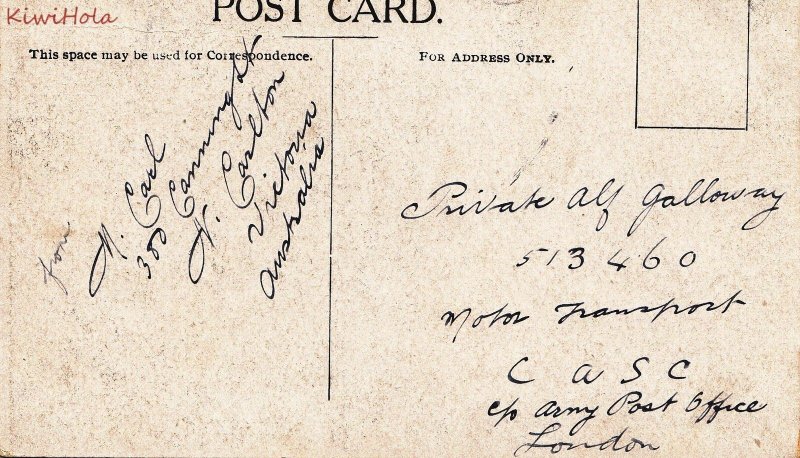 KiwiHola
POST CARD.
This space may be used for Correspondence.
FOR ADDRESS ONLY.
from
M. Carl
380 Canning St
N. Carlton
Victoria
Australia
Private Alf Galloway
513460
Motor Transport
C A S C
c/o Army Post Office
London